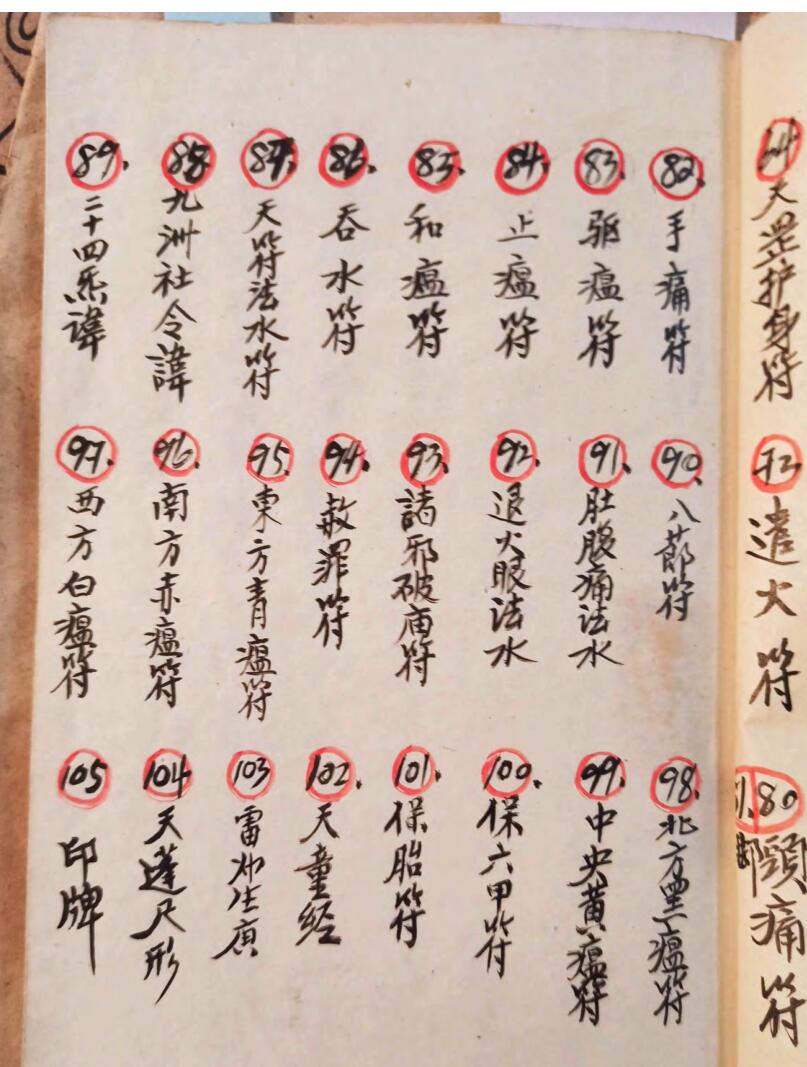 82. 手痛符
83. 驱瘟符
84. 止瘟符
85. 和瘟符
86. 吞水符
87. 天符法水符
88 九洲社令諱
89. 二十四炁諱
90. 八節符
91. 肚腹痛法水
92. 退火眼法水
93. 諸邪破庙符
94. 赦罪符
95. 東方青瘟符
96. 南方赤瘟符
97. 西方白瘟符
98. 北方黑瘟符
99. 中央黄瘟符
100. 保六甲符
101. 保胎符
102. 天童经
103 雷
104 天蓬尺形
105 印牌
天罡护身符
遣火符
80 頸痛符